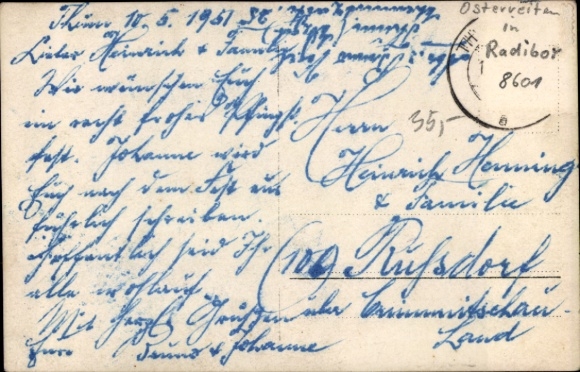 10. 5. 1951
Lieber Heinrich & Familie
Wir wünschen Euch
ein recht frohes Pfingst-
fest. Johanne wird
Euch nach dem Fest aus-
führlich schreiben.
Hoffentlich seid Ihr
alle wohlauf
Mit herzl. Grüßen
Eure Bruno & Johanne
Herrn
Heinrich Henning
& Familie
Rußdorf
über Crimmitschau-
Land
35,-
Osterreiten
in
Radibor
8601